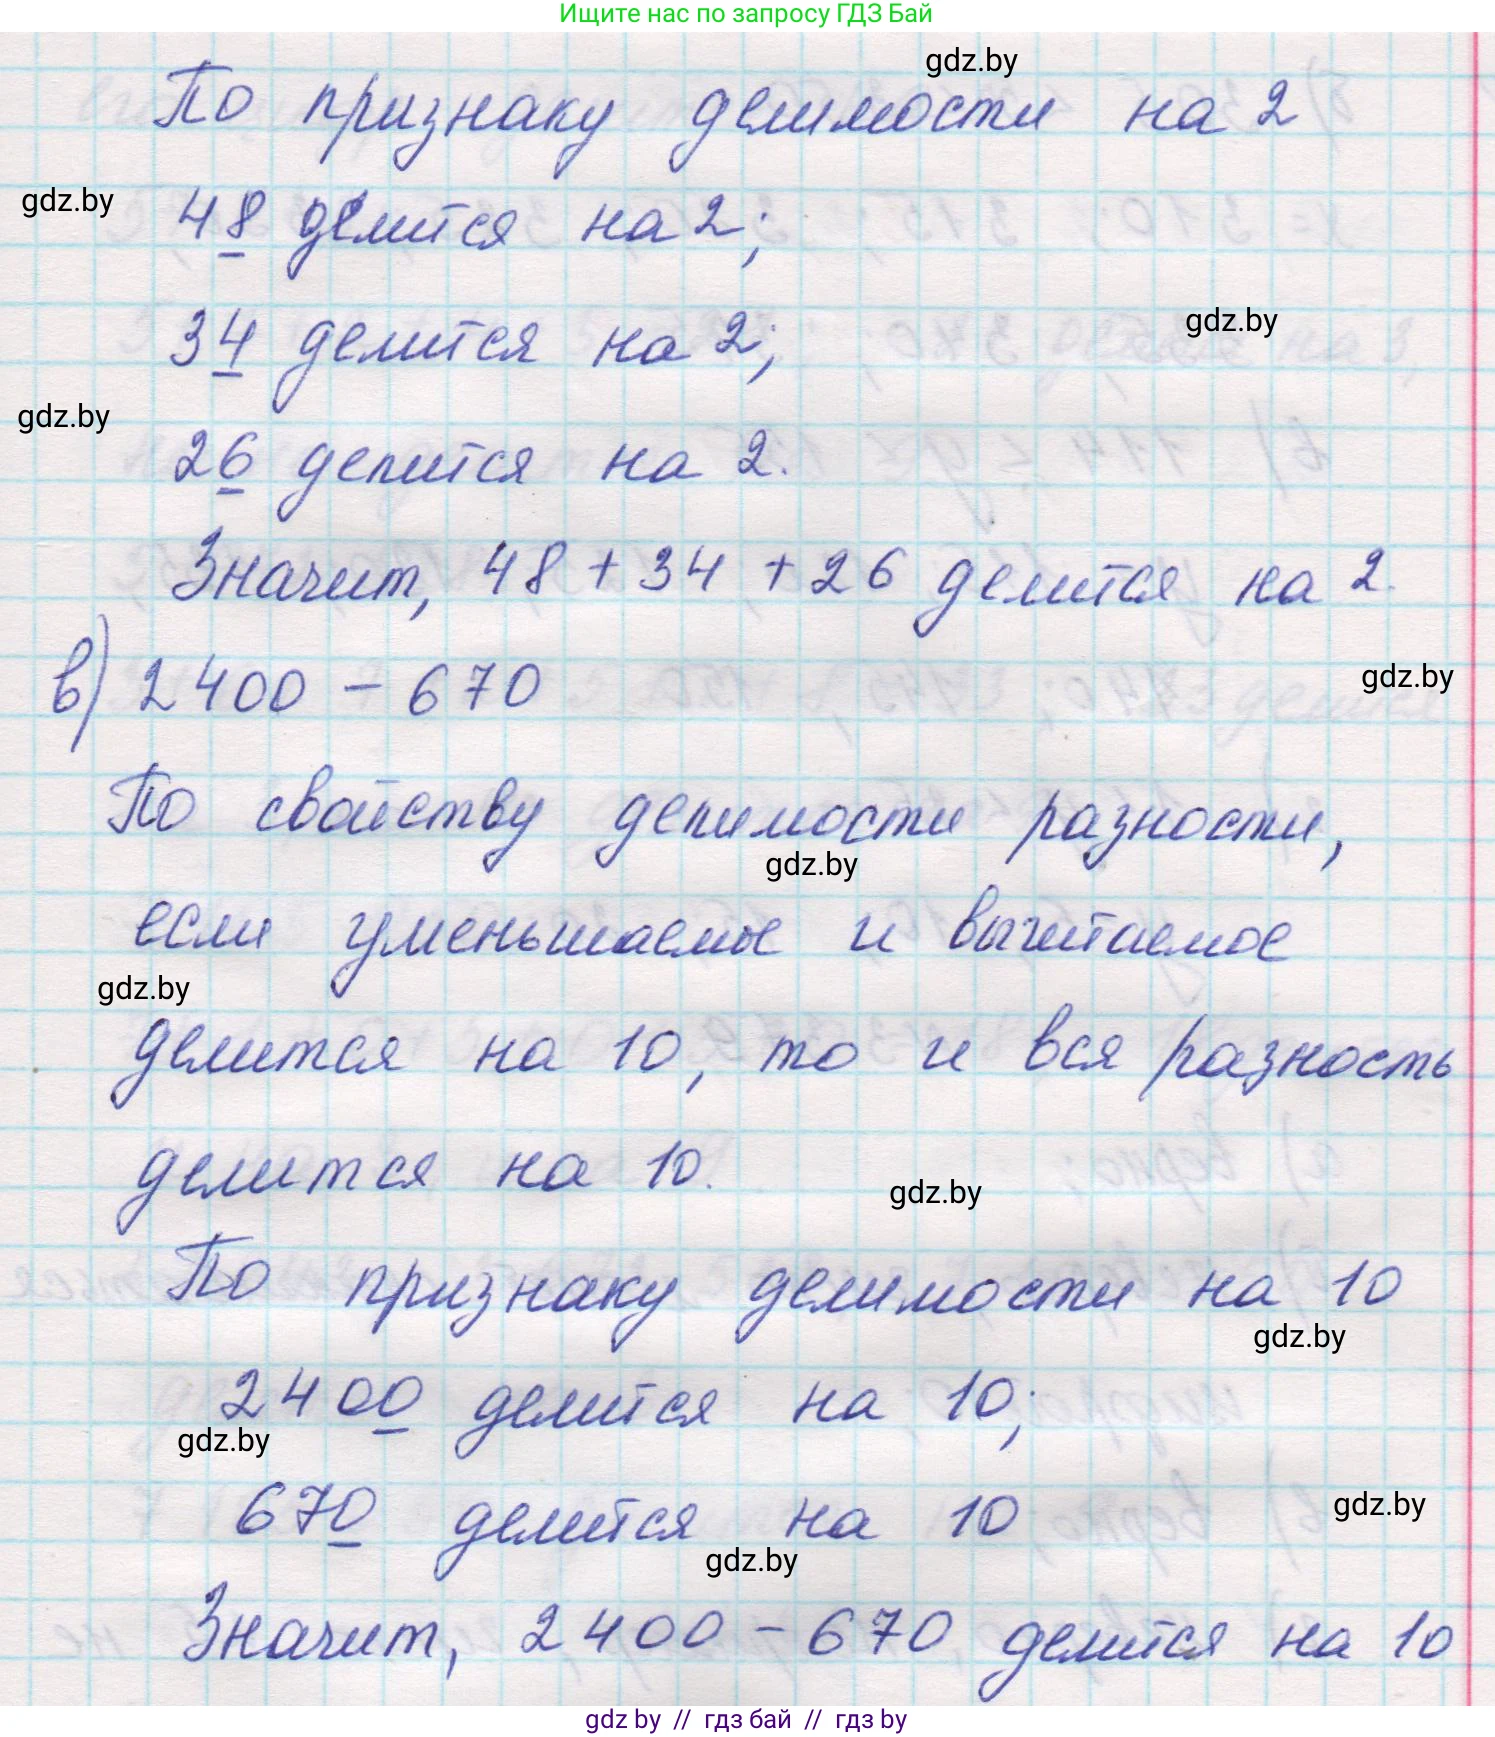 Ищите нас по запросу ГДЗ Бай
gdz.by
По признаку делимости на 2
gdz.by
48 делится на 2;
gdz.by
34 делится на 2;
gdz.by
26 делится на 2.
Значит, 48 + 34 + 26 делится на 2.
в) 2400 - 670
gdz.by
По свойству делимости разности,
gdz.by
если уменьшаемое и вычитаемое
gdz.by
делится на 10, то и вся разность
делится на 10.
gdz.by
По признаку делимости на 10
gdz.by
2400 делится на 10;
gdz.by
670 делится на 10
gdz.by
gdz.by
Значит, 2400 - 670 делится на 10
gdz by // гдз бай // гдз by